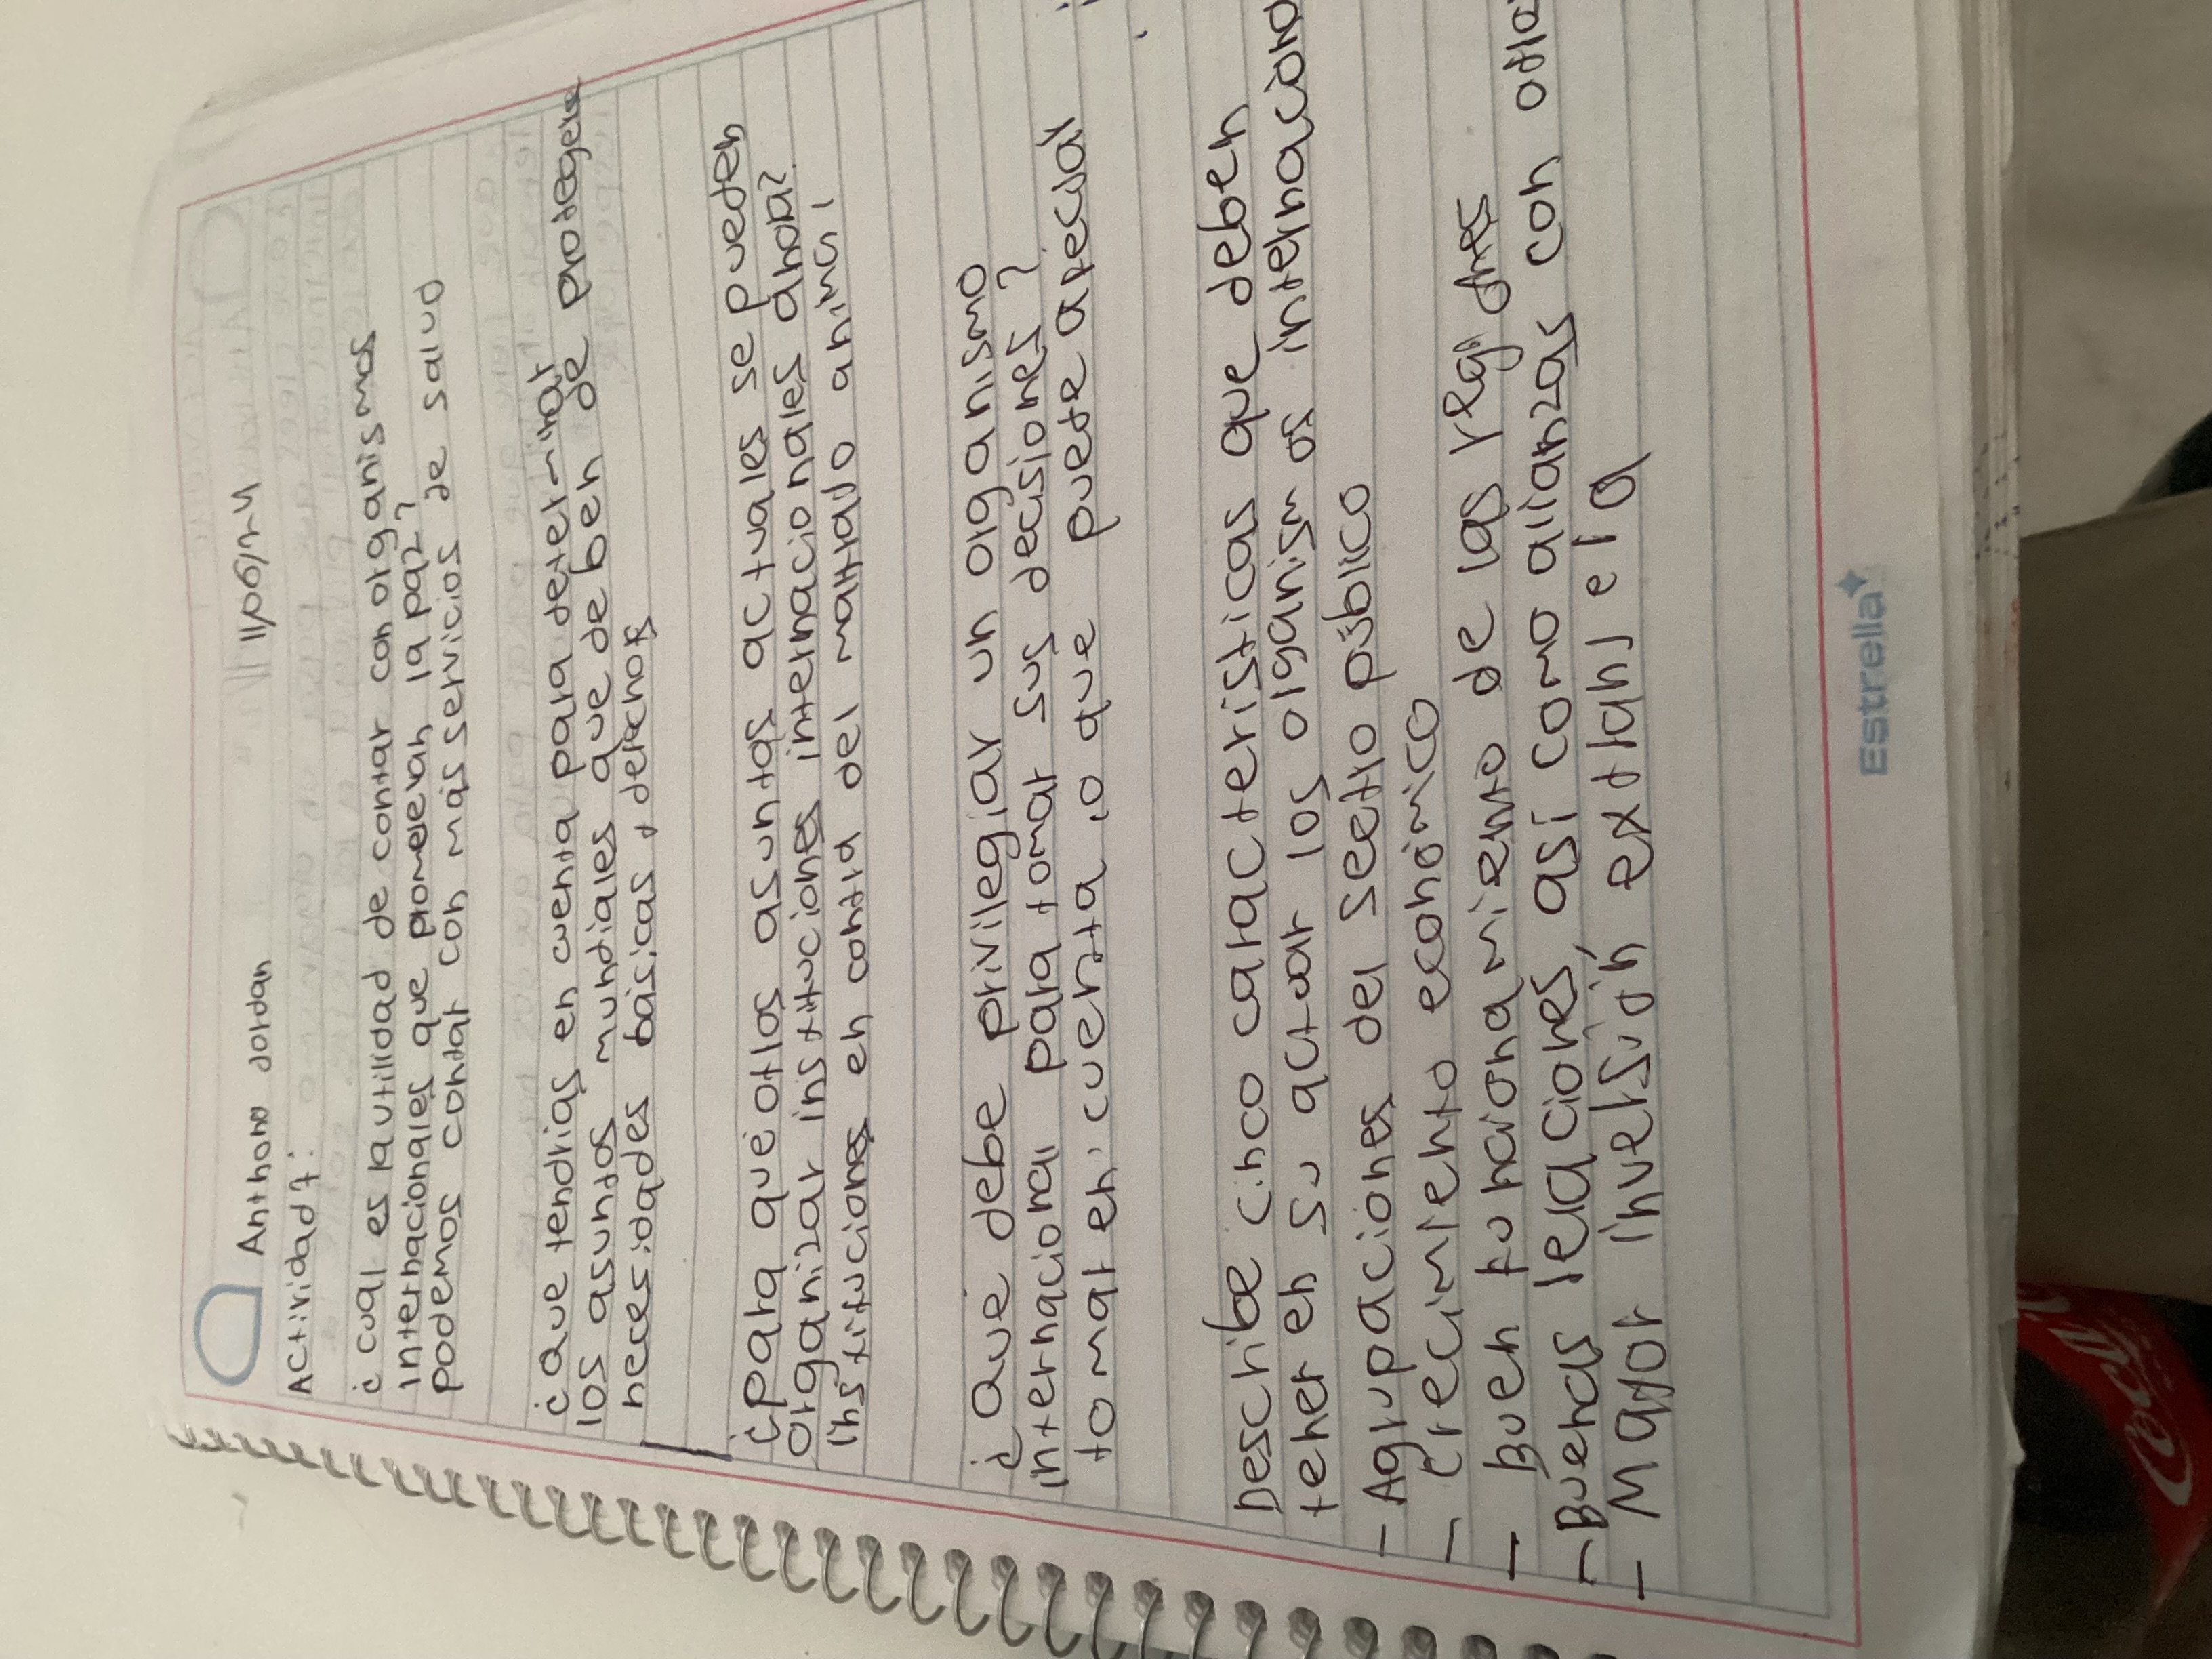 Anthony Jordan 11/06/24
Actividad 7:
¿Cual es la utilidad de contar con organismos
internacionales que promuevan la paz?
podemos contar con más servicios de salud
¿Que tendrias en cuenta para determinar
los asuntos mundiales que deben de protegerse
necesidades básicas y derechos
¿Para qué otros asuntos actuales se pueden
organizar instituciones internacionales ahora?
instituciones en contra del maltrato animal
¿Qué debe privilegiar un organismo
internacional para tomar sus decisiones?
tomar en cuenta lo que puede afectar
Describe cinco características que deben
tener en su actuar los organismos internaciona
- Agrupaciones del sector público
- Crecimiento económico
- Buen funcionamiento de las
- Buenas relaciones, así como alianzas con otra
- Mayor inversión extranjera
Estrella
Coca